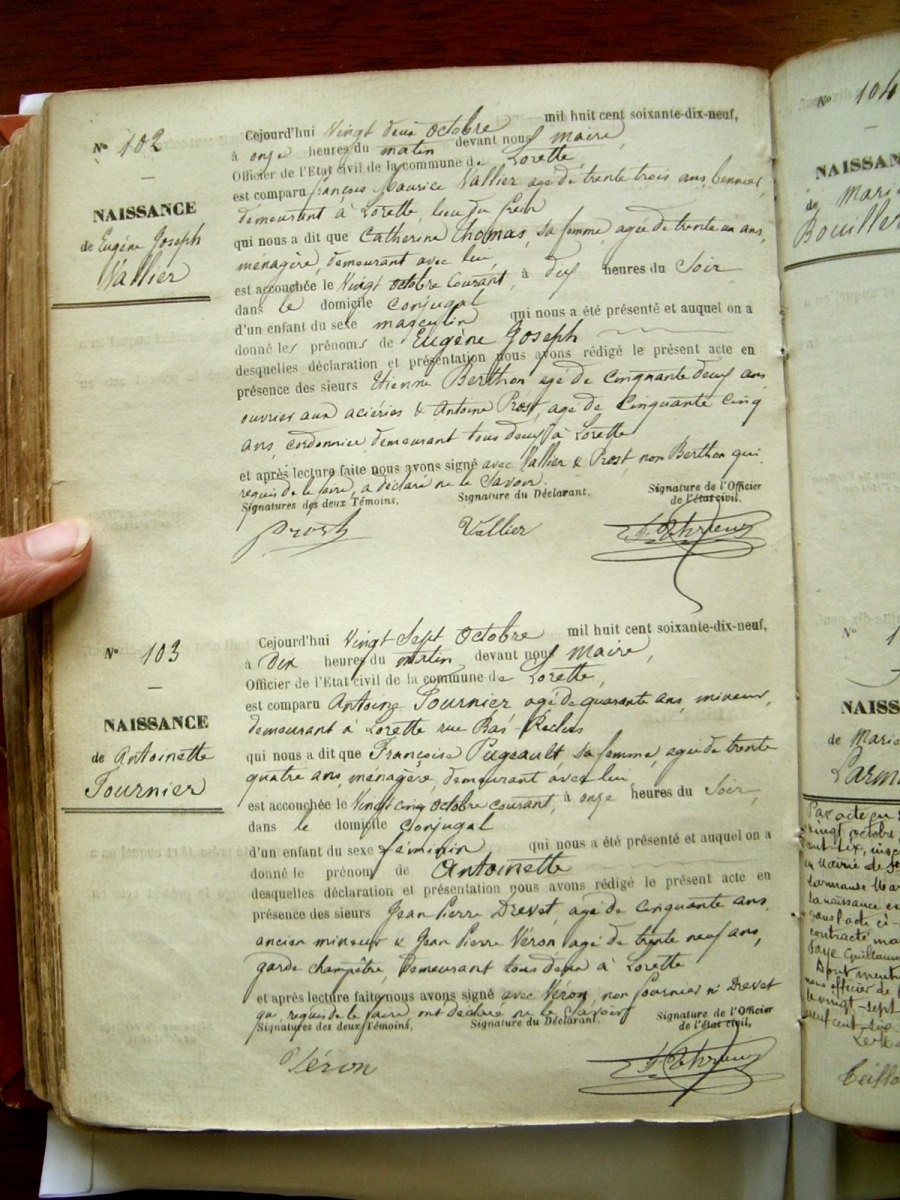 N° 102
NAISSANCE
de Eugène Joseph
Vallier
Cejourd'hui Vingt deux octobre mil huit cent soixante-dix-neuf,
à onze heures du matin devant nous maire,
Officier de l'Etat civil de la commune de Lorette,
est comparu françois Maurice Vallier agé de trente trois ans,
demeurant à Lorette, lieu du
qui nous a dit que Catherine Thomas, sa femme, agée de trente un ans,
ménagère, demeurant avec lui,
est accouchée le Vingt octobre courant, à dix heures du Soir
dans le domicile conjugal
d'un enfant du sexe masculin qui nous a été présenté et auquel on a
donné les prénoms de Eugène Joseph
desquelles déclaration et présentation nous avons rédigé le présent acte en
présence des sieurs Etienne Berthon agé de Cinquante deux ans
ouvrier aux aciéries & Antoine Prost, agé de Cinquante cinq
ans, cordonnier, demeurant tous deux à Lorette
et après lecture faite nous avons signé avec Vallier & Prost non Berthon qui
requis de le faire, a déclaré ne le Savoir.
Signatures des deux Témoins, Signature du Déclarant, Signature de l'Officier
de l'état civil,
Prost Vallier
N° 103
NAISSANCE
de Antoinette
Fournier
Cejourd'hui Vingt Sept Octobre mil huit cent soixante-dix-neuf,
à Dix heures du matin, devant nous maire,
Officier de l'Etat civil de la commune de Lorette,
est comparu Antoine Fournier agé de quarante ans, mineur,
demeurant à Lorette rue Bas
qui nous a dit que Françoise Pugeault, sa femme, agée de trente
quatre ans, ménagère, demeurant avec lui,
est accouchée le Vingt cinq octobre courant, à onze heures du Soir,
dans le domicile Conjugal
d'un enfant du sexe féminin qui nous a été présenté et auquel on a
donné le prénom de Antoinette
desquelles déclaration et présentation nous avons rédigé le présent acte en
présence des sieurs Jean Pierre Drevet, agé de Cinquante ans
ancien mineur & Jean Pierre Véron, agé de trente neuf ans,
garde champêtre, demeurant tous deux à Lorette
et après lecture faite nous avons signé avec Véron, non fournier ni Drevet
qui, requis de le faire, ont déclaré ne le Savoir
Signatures des deux Témoins, Signature du Déclarant, Signature de l'Officier
de l'état civil,
Véron
N° 104
NAISSAN
de Marie
Bouiller
N° 1
NAISS
de Marie
Par acte
vingt octobre
en Mairie de
la naissance
contracté